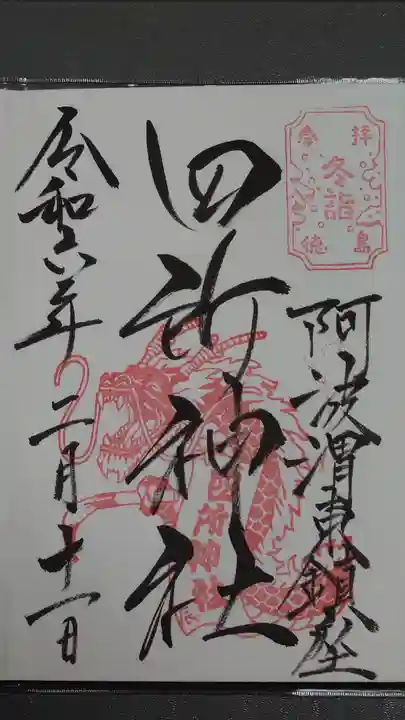 参拝
冬詣
徳島
阿波渭東鎮座
四所神社
四所神社
辰
令和六年
二月十一日